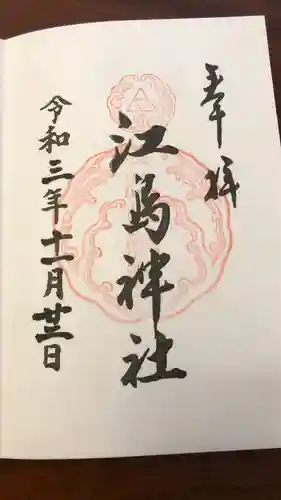 奉拝
江島神社
令和三年十一月廿三日